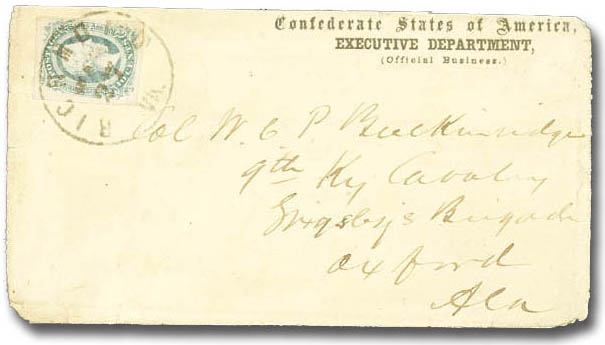 Confederate States of America,
EXECUTIVE DEPARTMENT,
(Official Business.)
RICHMOND VA.
Col W C P Breckinridge
9th Ky Cavalry
Grigsby's Brigade
Oxford
Ala